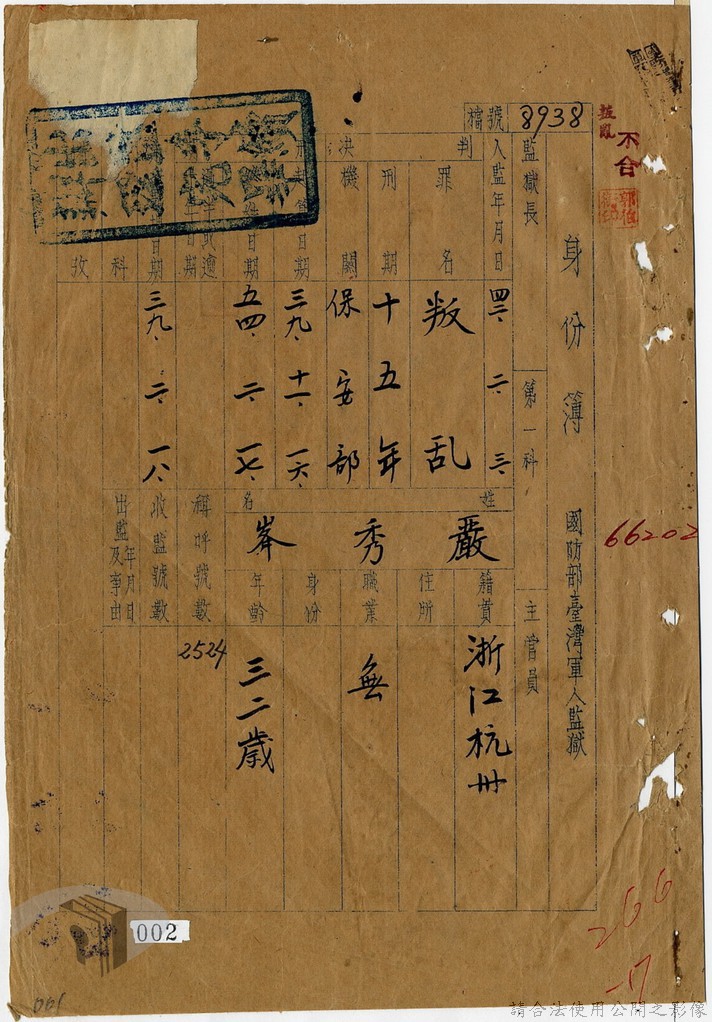 檔號 8938
不合
身份簿 國防部臺灣軍人監獄
監獄長 第一科 主管員
入監年月日 四二、二、三、
判決
罪名 叛乱
刑期 十五年
機關 保安部
日期 三九、十一、一六、
日期 五四、二、一七、
日期 三九、二、一八、
科
姓名 嚴秀峯
籍貫 浙江杭州
住所
職業 無
身份
年齡 三二歲
稱呼號數 2524
收監號數
出監年月日及事由
66202
266
002
001
請合法使用公開之影像